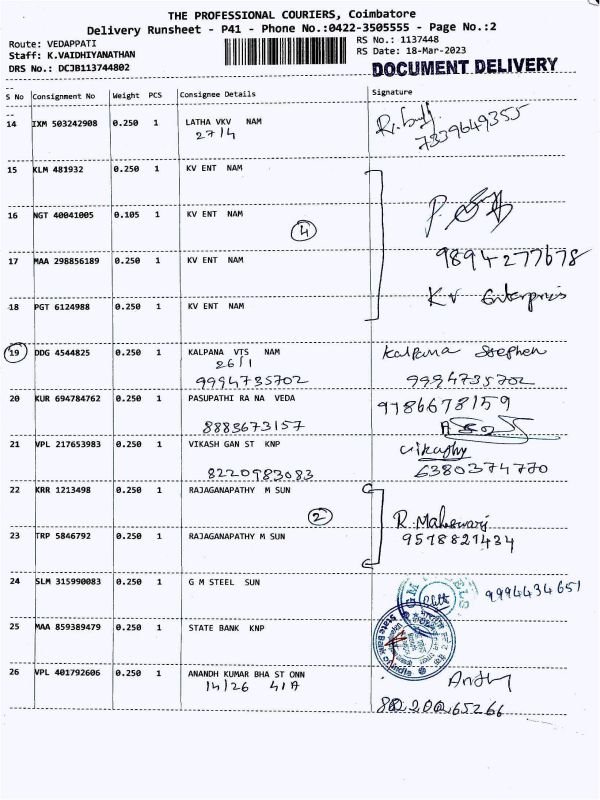 THE PROFESSIONAL COURIERS, Coimbatore
Delivery Runsheet - P41 - Phone No.:0422-3505555 - Page No.:2
Route: VEDAPPATI
RS No.: 1137448
Staff: K.VAIDHIYANATHAN
RS Date: 18-Mar-2023
DRS No.: DCJB113744802
DOCUMENT DELIVERY
S No Consignment No Weight PCS Consignee Details Signature
14 IXM 503242908 0.250 1 LATHA VKV NAM
27/4
7339649355
15 KLM 481932 0.250 1 KV ENT NAM
16 NGT 40041005 0.105 1 KV ENT NAM
4
17 MAA 298856189 0.250 1 KV ENT NAM
9894277678
18 PGT 6124988 0.250 1 KV ENT NAM
KV Enterpris
19 DDG 4544825 0.250 1 KALPANA VTS NAM Kalpana Stephen
26/1
9994735702 9994735702
20 KUR 694784762 0.250 1 PASUPATHI RA NA VEDA 9786678159
8883673157
21 VPL 217653983 0.250 1 VIKASH GAN ST KNP
8220983083 6380374770
22 KRR 1213498 0.250 1 RAJAGANAPATHY M SUN
2
R. Maheswari
23 TRP 5846792 0.250 1 RAJAGANAPATHY M SUN 9578821434
24 SLM 315990083 0.250 1 G M STEEL SUN 9994434651
25 MAA 859389479 0.250 1 STATE BANK KNP
26 VPL 401792606 0.250 1 ANANDH KUMAR BHA ST ONN
14/26 41A